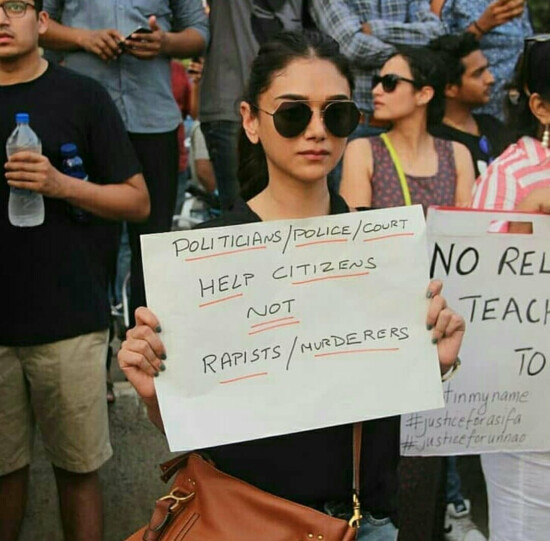 POLITICIANS/POLICE/COURT
HELP CITIZENS
NOT
RAPISTS/MURDERERS
NO REL
TEACH
TO
#inmyname
#justiceforasifa
#justiceforunnao